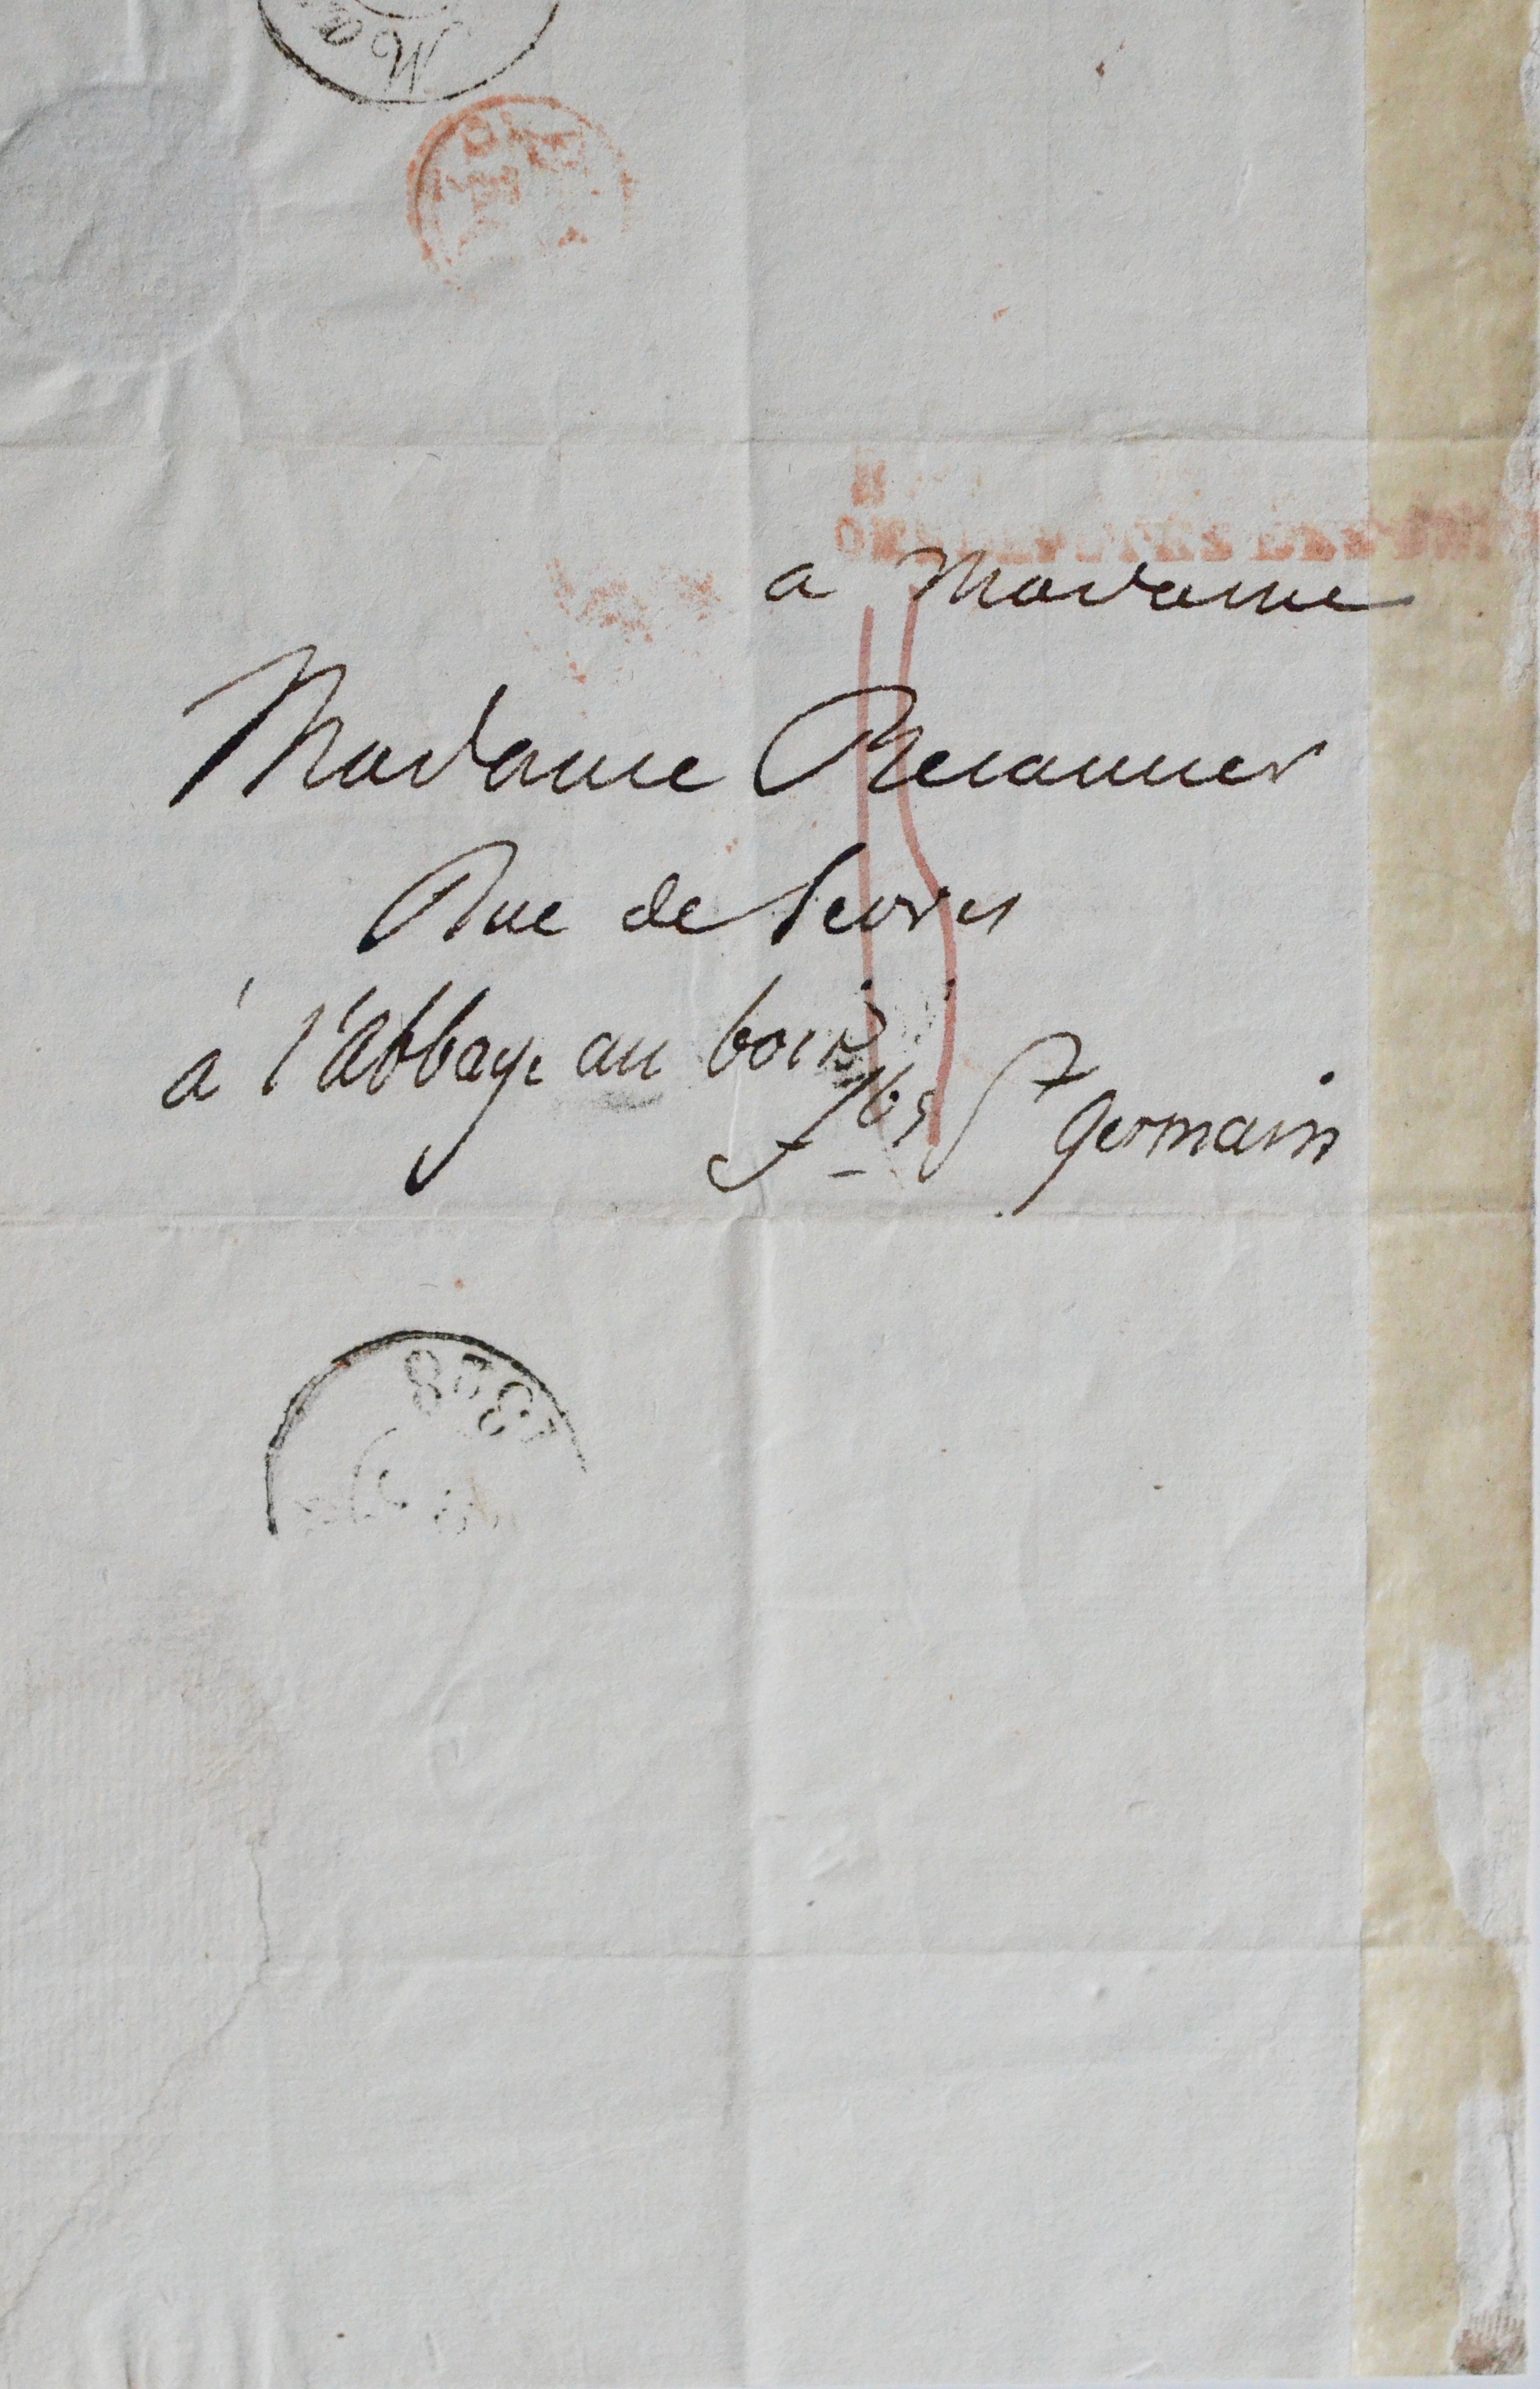 Ma
a Madame
Madame Recamier
Rue de Sevres
à l'abbaye au bois
fbg St germain
1828